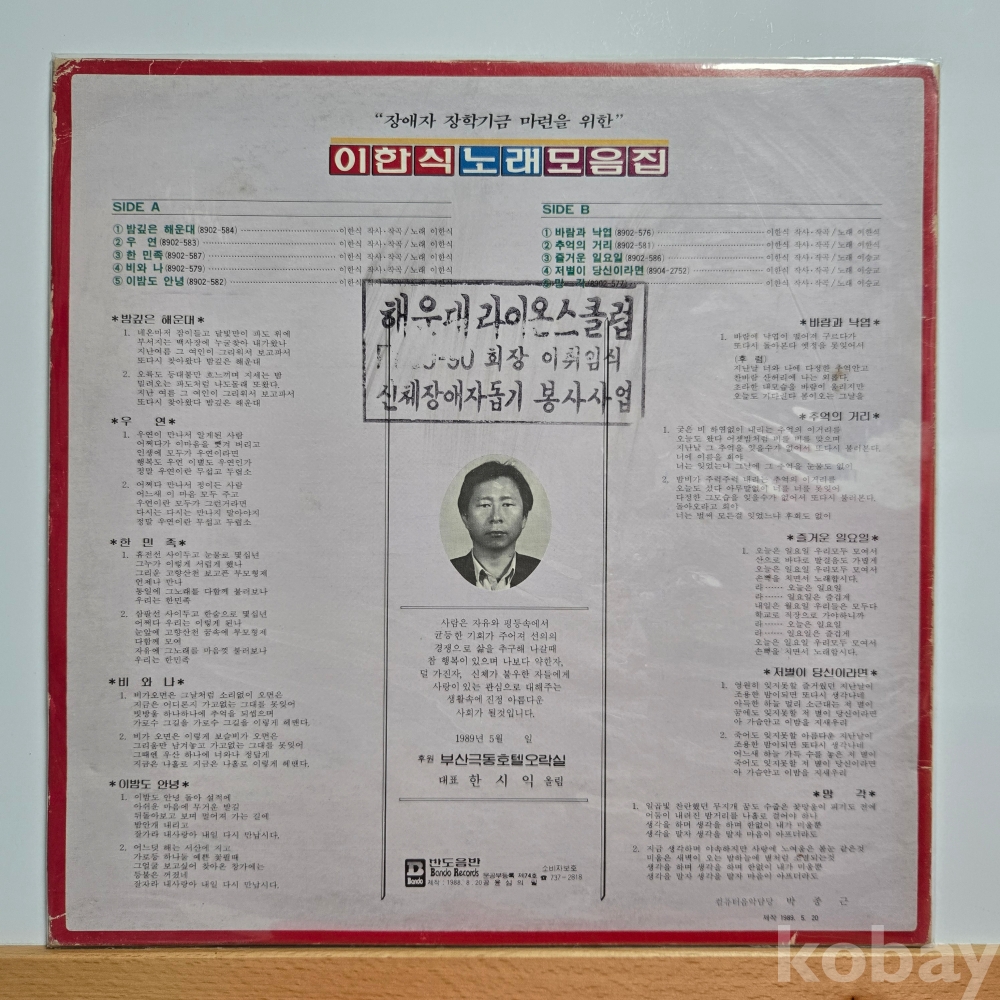 "장애자 장학기금 마련을 위한"
이한식노래모음집
SIDE A
① 밤깊은 해운대 (8902-584) 이한식 작사·작곡/노래 이한식
② 우 연 (8902-583) 이한식 작사·작곡/노래 이한식
③ 한 민족 (8902-587) 이한식 작사·작곡/노래 이한식
④ 비와 나 (8902-579) 이한식 작사·작곡/노래 이한식
⑤ 이밤도 안녕 (8902-582) 이한식 작사·작곡/노래
SIDE B
① 바람과 낙엽 (8902-576) 이한식 작사·작곡/노래 이한식
② 추억의 거리 (8902-581) 이한식 작사·작곡/노래 이한식
③ 즐거운 일요일 (8902-586) 이한식 작사·작곡/노래 이승교
④ 저별이 당신이라면 (8904-2752) 이한식 작사·작곡/노래 이승교
⑤ 망 각 이한식 작사·작곡/노래 이승교
해운대 라이온스클럽
회장 이취임식
신체장애자돕기 봉사사업
*밤깊은 해운대*
1. 네온마저 잠이들고 달빛만이 파도 위에
부서지는 백사장에 누굴찾아 내가왔나
지난여름 그 여인이 그리워서 보고파서
또다시 찾아왔다 밤깊은 해운대
2. 오륙도 등대불만 흐느끼며 지새는 밤
밀려오는 파도처럼 나도돌래 또왔다.
지난 여름 그 여인이 그리워서 보고파서
또다시 찾아왔다 밤깊은 해운대
*우 연*
1. 우연이 만나서 알게된 사람
어쩌다가 이마음을 뺏겨 버리고
인생에 모두가 우연이라면
행복도 우연 이별도 우연인가
정말 우연이란 무섭고 두렵소
2. 어쩌다 만나서 정이든 사람
어느새 이 마음 모두 주고
우연이란 모두가 그런거라면
다시는 다시는 만나지 말아야지
정말 우연이란 무섭고 두렵소
*한 민 족*
1. 휴전선 사이두고 눈물로 몇십년
그누가 이렇게 서럽게 했나
그리운 고향산천 보고픈 부모형제
언제나 만나
통일에 그노래를 다함께 불러보나
우리는 한민족
2. 삼팔선 사이두고 한숨으로 몇십년
어쩌다 우리는 이렇게 된나
눈앞에 고향산천 꿈속에 부모형제
다함께 모여
자유에 그노래를 마음껏 불러보나
우리는 한민족
*비 와 나*
1. 비가오면은 그날처럼 소리없이 오면은
지금은 어디론지 가고없는 그대를 못잊어
빗방울 하나하나에 추억을 되씹으며
가로수 그길을 가로수 그길을 이렇게 헤맨다.
2. 비가 오면은 이렇게 보슬비가 오면은
그리움만 남겨놓고 가고없는 그대를 못잊어
그때엔 우산 하나에 너와나 정답게
지금은 나홀로 지금은 나홀로 이렇게 헤맨다.
*이밤도 안녕*
1. 이밤도 안녕 돌아 설적에
아쉬운 마음에 무거운 발길
뒤돌아보고 보며 멀어져 가는 길에
밤안개 내리고
잘가라 내사랑아 내일 다시 만납시다.
2. 어느덧 해는 서산에 지고
가로등 하나둘 예쁜 꽃필때
그얼굴 보고싶어 찾아온 창가에는
등불은 꺼졌네
잘자라 내사랑아 내일 다시 만납시다.
사람은 자유와 평등속에서
균등한 기회가 주어져 선의의
경쟁으로 삶을 추구해 나갈때
참 행복이 있으며 나보다 약한자,
덜 가진자, 신체가 불우한 자들에게
사랑이 있는 관심으로 대해주는
생활속에 진정 아름다운
사회가 될것입니다.
1989년 5월 일
후원 부산극동호텔오락실
대표 한 시 익 올림
반도음반
Bando Records 문공부등록 제74호
제작 : 1988. 8. 20 공윤심의필
소비자보호
☎ 737-2818
*바람과 낙엽*
1. 바람에 낙엽이 떨어져 구르다가
또다시 돌아본다 옛정을 못잊어서
(후 렴)
지난날 너와 나에 다정한 추억안고
찬바람 산허리에 나는 외롭다.
초라한 내모습을 바람이 울리지만
오늘도 기다린다 봄이오는 그날을
*추억의 거리*
1. 궂은 비 하염없이 내리는 추억의 이거리를
오늘도 왔다 어젯밤처럼 비를 비를 맞으며
지난날 그 추억을 잊을수가 없어서 또다시 불러본다.
너에 이름을 희야
너는 잊었는냐 그날에 그 추억을 눈물도 없이
2. 밤비가 주룩주룩 내리는 추억의 이거리를
오늘도 섰다 아무말없이 너를 너를 못잊어
다정한 그모습을 잊을수가 없어서 또다시 불러본다.
돌아오라고 희야
너는 벌써 모든걸 잊었느냐 후회도 없이
*즐거운 일요일*
1. 오늘은 일요일 우리모두 모여서
산으로 바다로 발걸음도 가볍게
오늘은 일요일 우리모두 모여서
손뼉을 치면서 노래합시다.
라…… 오늘은 일요일
라…… 일요일은 즐겁게
내일은 월요일 우리들은 모두다
학교로 직장으로 가야하니까
라…… 오늘은 일요일
라…… 일요일은 즐겁게
오늘은 일요일 우리모두 모여서
손뼉을 치면서 노래합시다.
*저별이 당신이라면*
1. 영원히 잊지못할 즐거웠던 지난날이
조용한 밤이되면 또다시 생각나네
아득한 하늘 멀리 소근대는 저 별이
꿈에도 잊지못할 저 별이 당신이라면
아 가슴안고 이밤을 지새우리
2. 죽어도 잊지못할 아름다운 지난날이
조용한 밤이되면 또다시 생각나네
어두운 하늘 가득 수를 놓은 저 별이
죽어도 잊지못할 저 별이 당신이라면
아 가슴안고 이밤을 지새우리
*망 각*
1. 일곱빛 찬란했던 무지개 꿈도 수줍은 꽃망울이 피기도 전에
어둠이 내려진 밤거리를 나홀로 걸어야 하나
생각을 하며 생각을 하며 한없이 내가 미울뿐
생각을 말자 생각을 말자 마음이 아프더라도
2. 지금 생각하며 야속하지만 사랑에 노여움은 봄눈 같은것
미움은 새벽이 오는 밤하늘에 별처럼 것
생각을 하며 생각을 하며 한없이 내가 미울뿐
생각을 말자 생각을 말자 마음이 아프더라도
컴퓨터음악담당 박 종 근
제작 1989. 5. 20
kobay